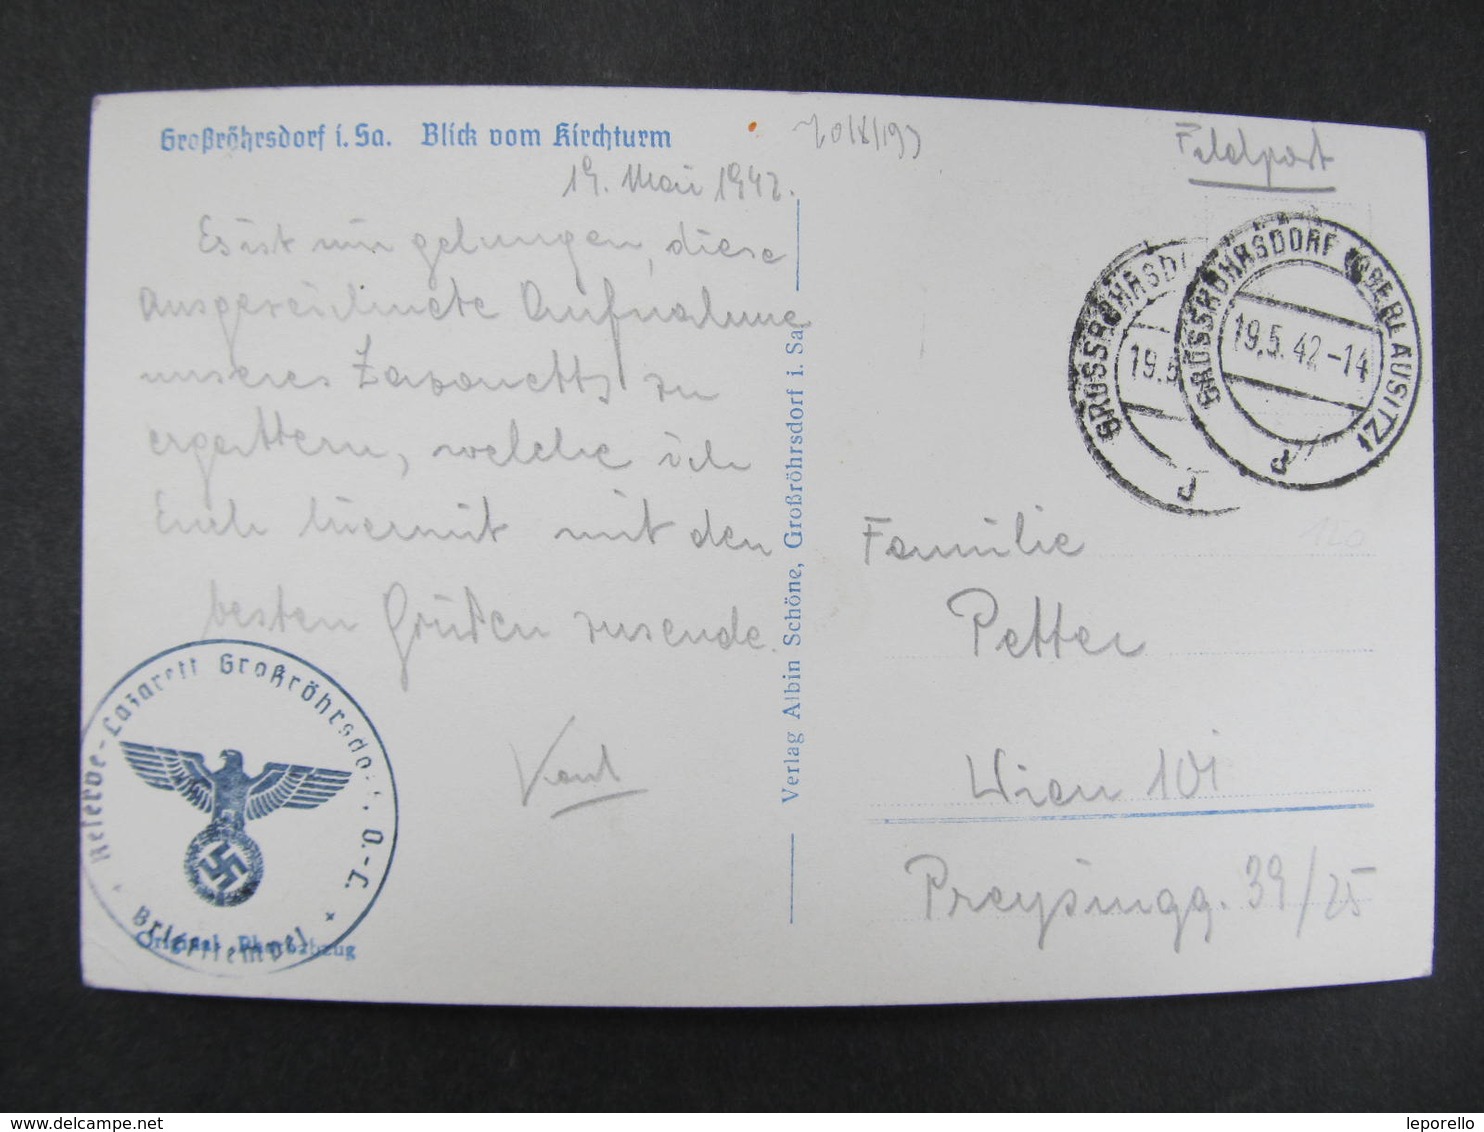 Großröhrsdorf i. Sa. Blick vom Kirchturm
19. Mai 1942.
Es ist mir gelungen, diese
ausgezeichnete Aufnahme
unseres Lazaretts zu
ergattern, welche ich
Euch hiermit mit den
besten Grüßen zusende.
Reserve-Lazarett Großröhrsdorf, O.-L.
* Briefstempel *
Original Photoabzug
Verlag Albin Schöne, Großröhrsdorf i. Sa.
Feldpost
GROSSRÖHRSD
19.5
d
GROSSRÖHRSDORF (OBERLAUSITZ)
19.5.42-14
d
120
Familie
Petter
Wien 101
Preysingg. 39/25
leporello
www.delcampe.net